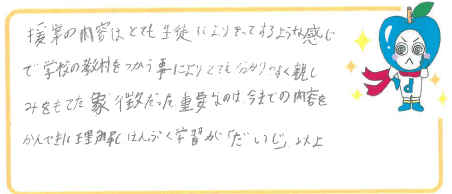 援業の内容はとても生徒によりそってするような感じ
で学校の教材をつかう事によりとても分かりやすく親し
みをもてた象徴だった重要なのは今までの内容を
かんぺきに理解しはんぷく学習が「だいじ」以上
d